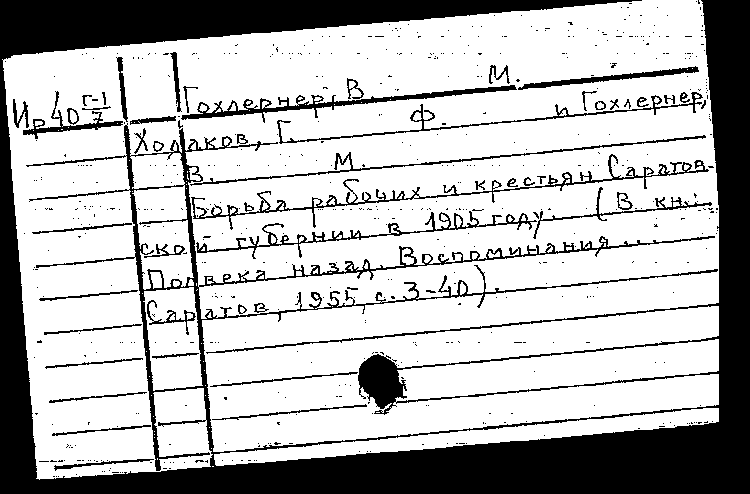 Ир40 Г-1/7 Гохлернер, В. М.
Ходаков, Г. Ф. и Гохлернер,
В. М.
Борьба рабочих и крестьян Саратов-
ской губернии в 1905 году. (В кн.:
Полвека назад. Воспоминания...
Саратов, 1955, с. 3-40).